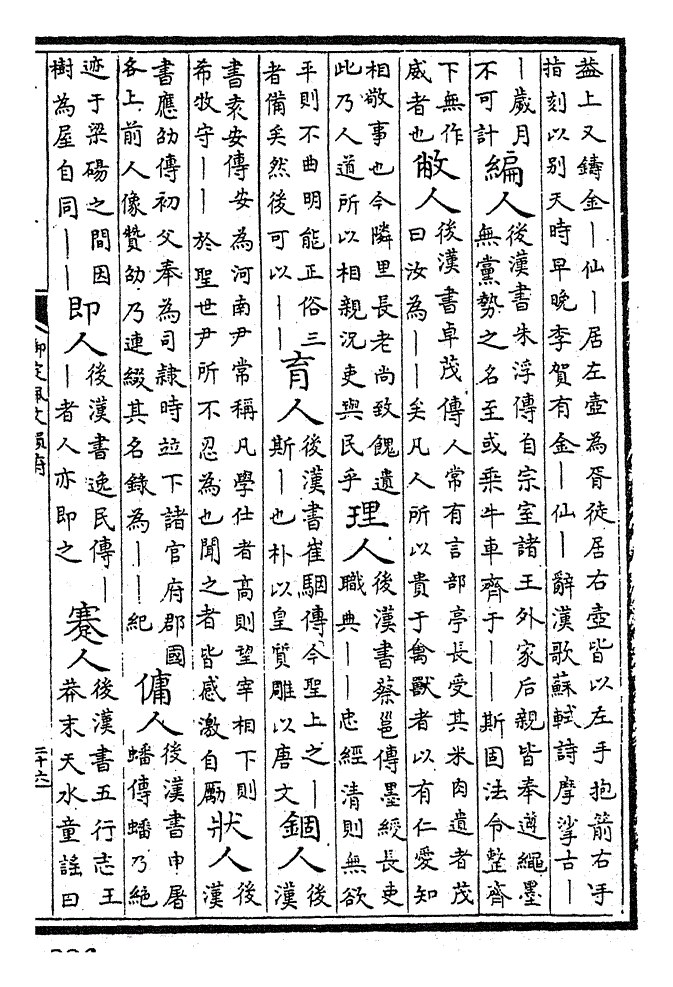 葢上又鑄金丨仙丨居左壺為胥徒居右壺皆以左手抱箭右手
指刻以别天時早晚李賀有金丨仙丨辭漢歌蘇軾詩摩挲古丨
丨歲月
不可計
編人
後漢書朱浮傳自宗室諸王外家后親皆奉遵繩墨
無黨勢之名至或乘牛車齊于丨丨斯固法令整齊
下無作
威者也
敝人
後漢書卓茂傳人常有言部亭長受其米肉遺者茂
曰汝為丨丨矣凡人所以貴于禽獸者以有仁愛知
相敬事也今隣里長老尚致餽遺
此乃人道所以相親況吏與民乎
理人
後漢書蔡邕傳墨綬長吏
職典丨丨忠經清則無欲
平則不曲明能正俗三
者備矣然後可以丨丨
育人
後漢書崔駰傳今聖上之丨
斯丨也朴以皇質雕以唐文
錮人
後
漢
書袁安傳安為河南尹常稱凡學仕者高則望宰相下則
希牧守丨丨於聖世尹所不忍為也聞之者皆感激自勵
狀人
後
漢
書應劭傳初父奉為司隸時竝下諸官府郡國
各上前人像贊劭乃連綴其名錄為丨丨紀
傭人
後漢書申屠
蟠傳蟠乃絶
迹于梁碭之間因
樹為屋自同丨丨
即人
後漢書逸民傳丨
丨者人亦即之
蹇人
後漢書五行志王
莽末天水童謡曰
御定佩文韻府
二十六